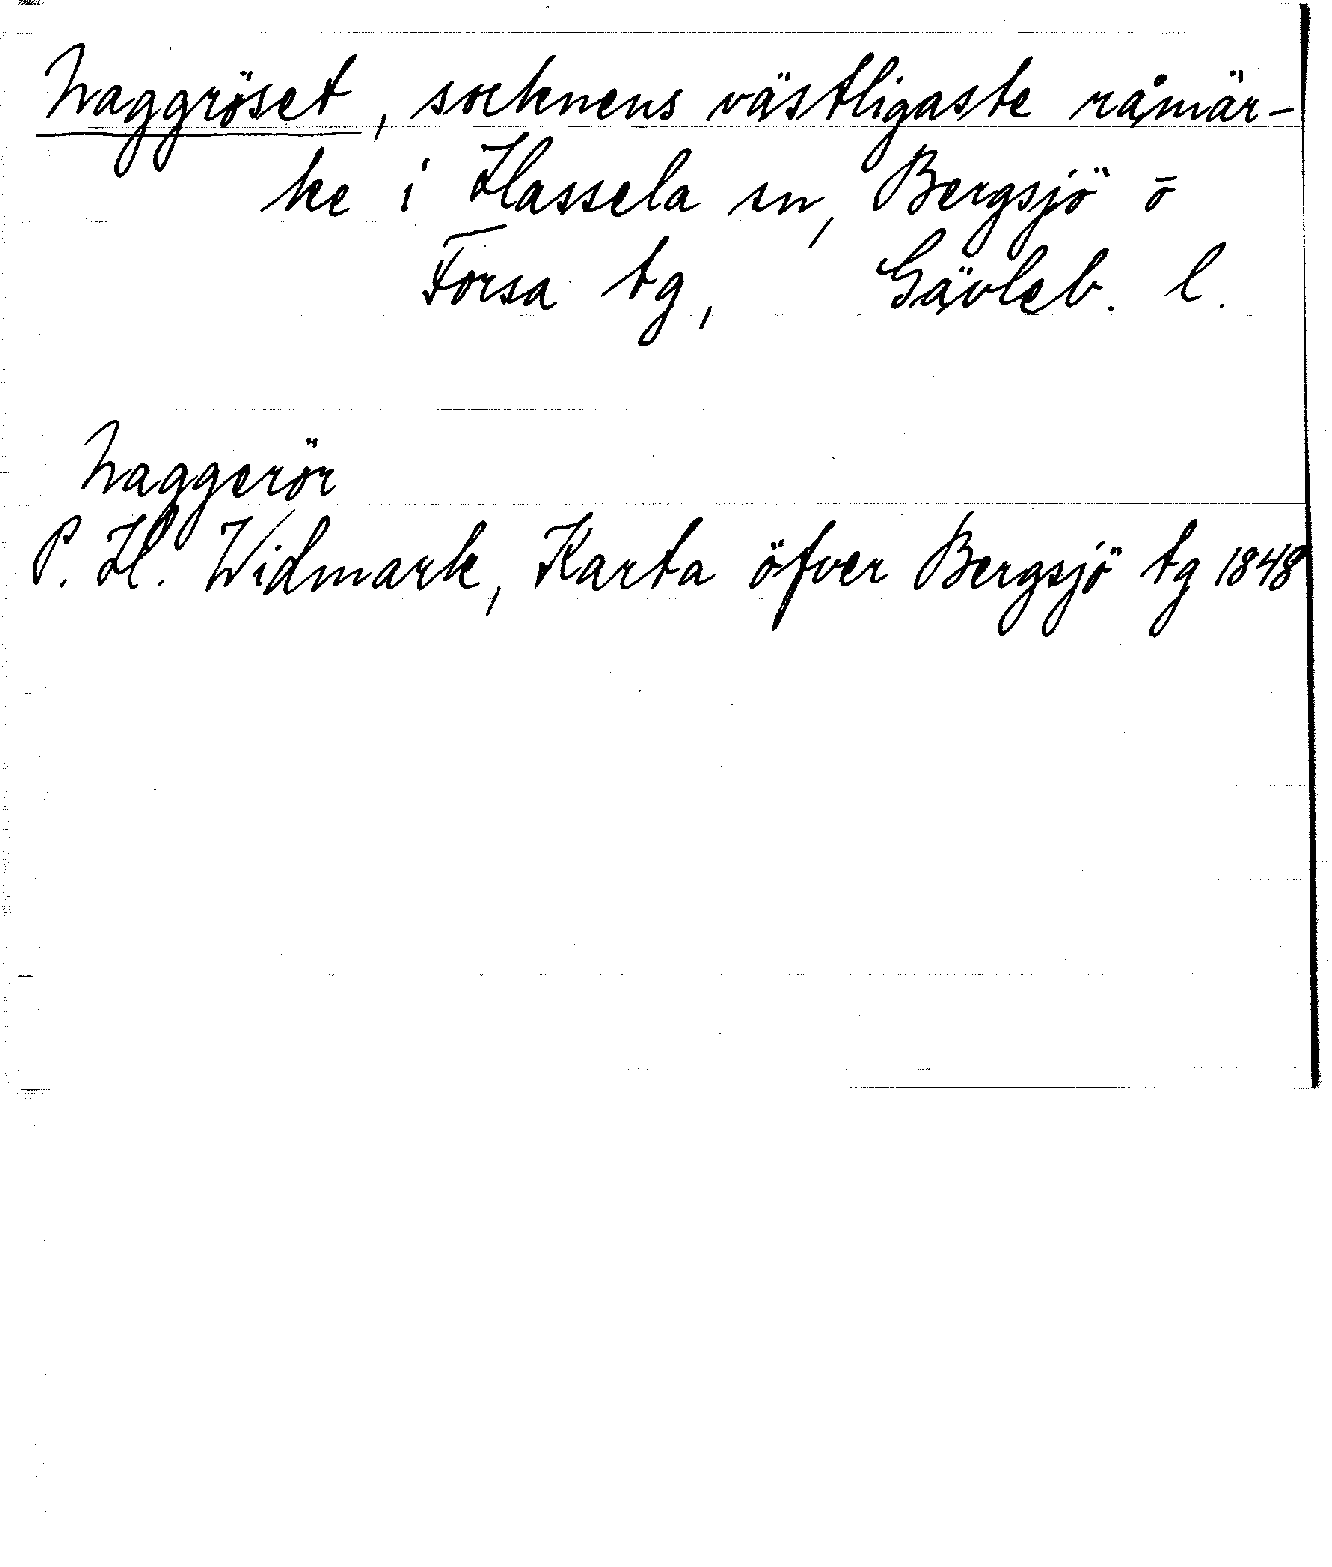 Naggröset, socknens västligaste råmär-
ke i Hassela sn, Bergsjö o
Forsa tg, Gävleb. l.
Naggerör
P. H. Widmark, Karta öfver Bergsjö tg 1848